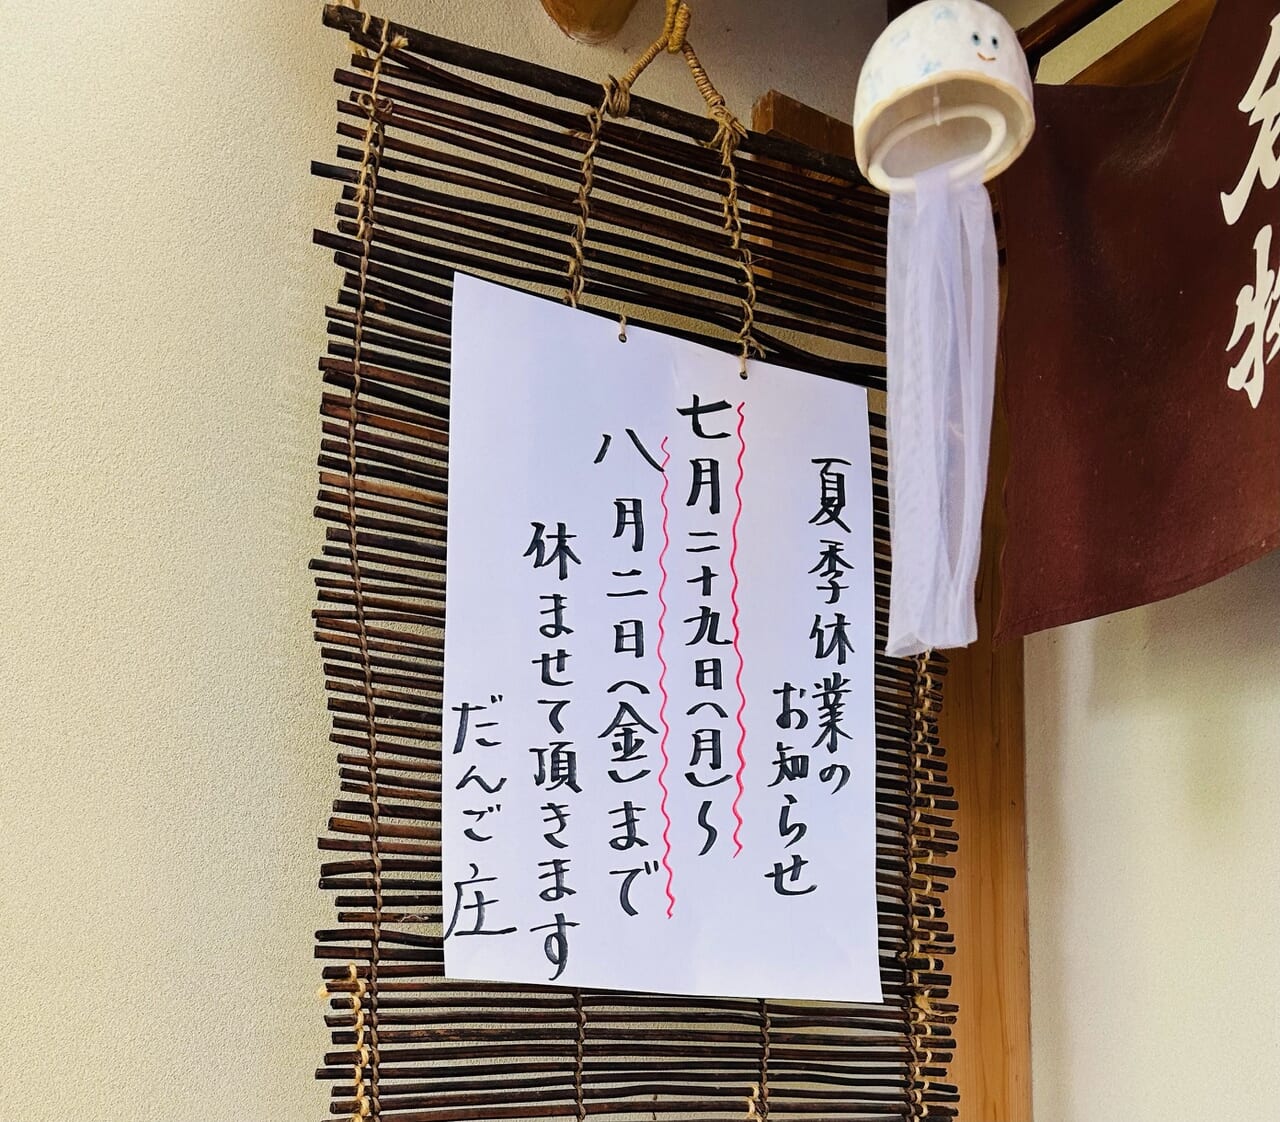 夏季休業の
お知らせ
七月二十九日(月)〜
八月二日(金)まで
休ませて頂きます
だんご庄